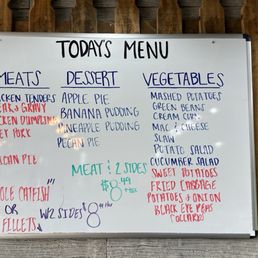 TODAYS MENU
MEATS
CKEN TENDERS
& GRAVY
CKEN DUMPLING
PORK
PIE
OLE CATFISH
OR
FILLETS
W/2 SIDES $8
DESSERT
APPLE PIE
BANANA PUDDING
PINEAPPLE PUDDING
PECAN PIE
MEAT & 2 SIDES
$8.99
+TAX
VEGETABLES
MASHED POTATOES
GREEN BEANS
CREAM CORN
MAC & CHEESE
SLAW
POTATO SALAD
CUCUMBER SALAD
SWEET POTATOES
FRIED CABBAGE
POTATOES & ONION
BLACK EYE PEAS
COLLARDS